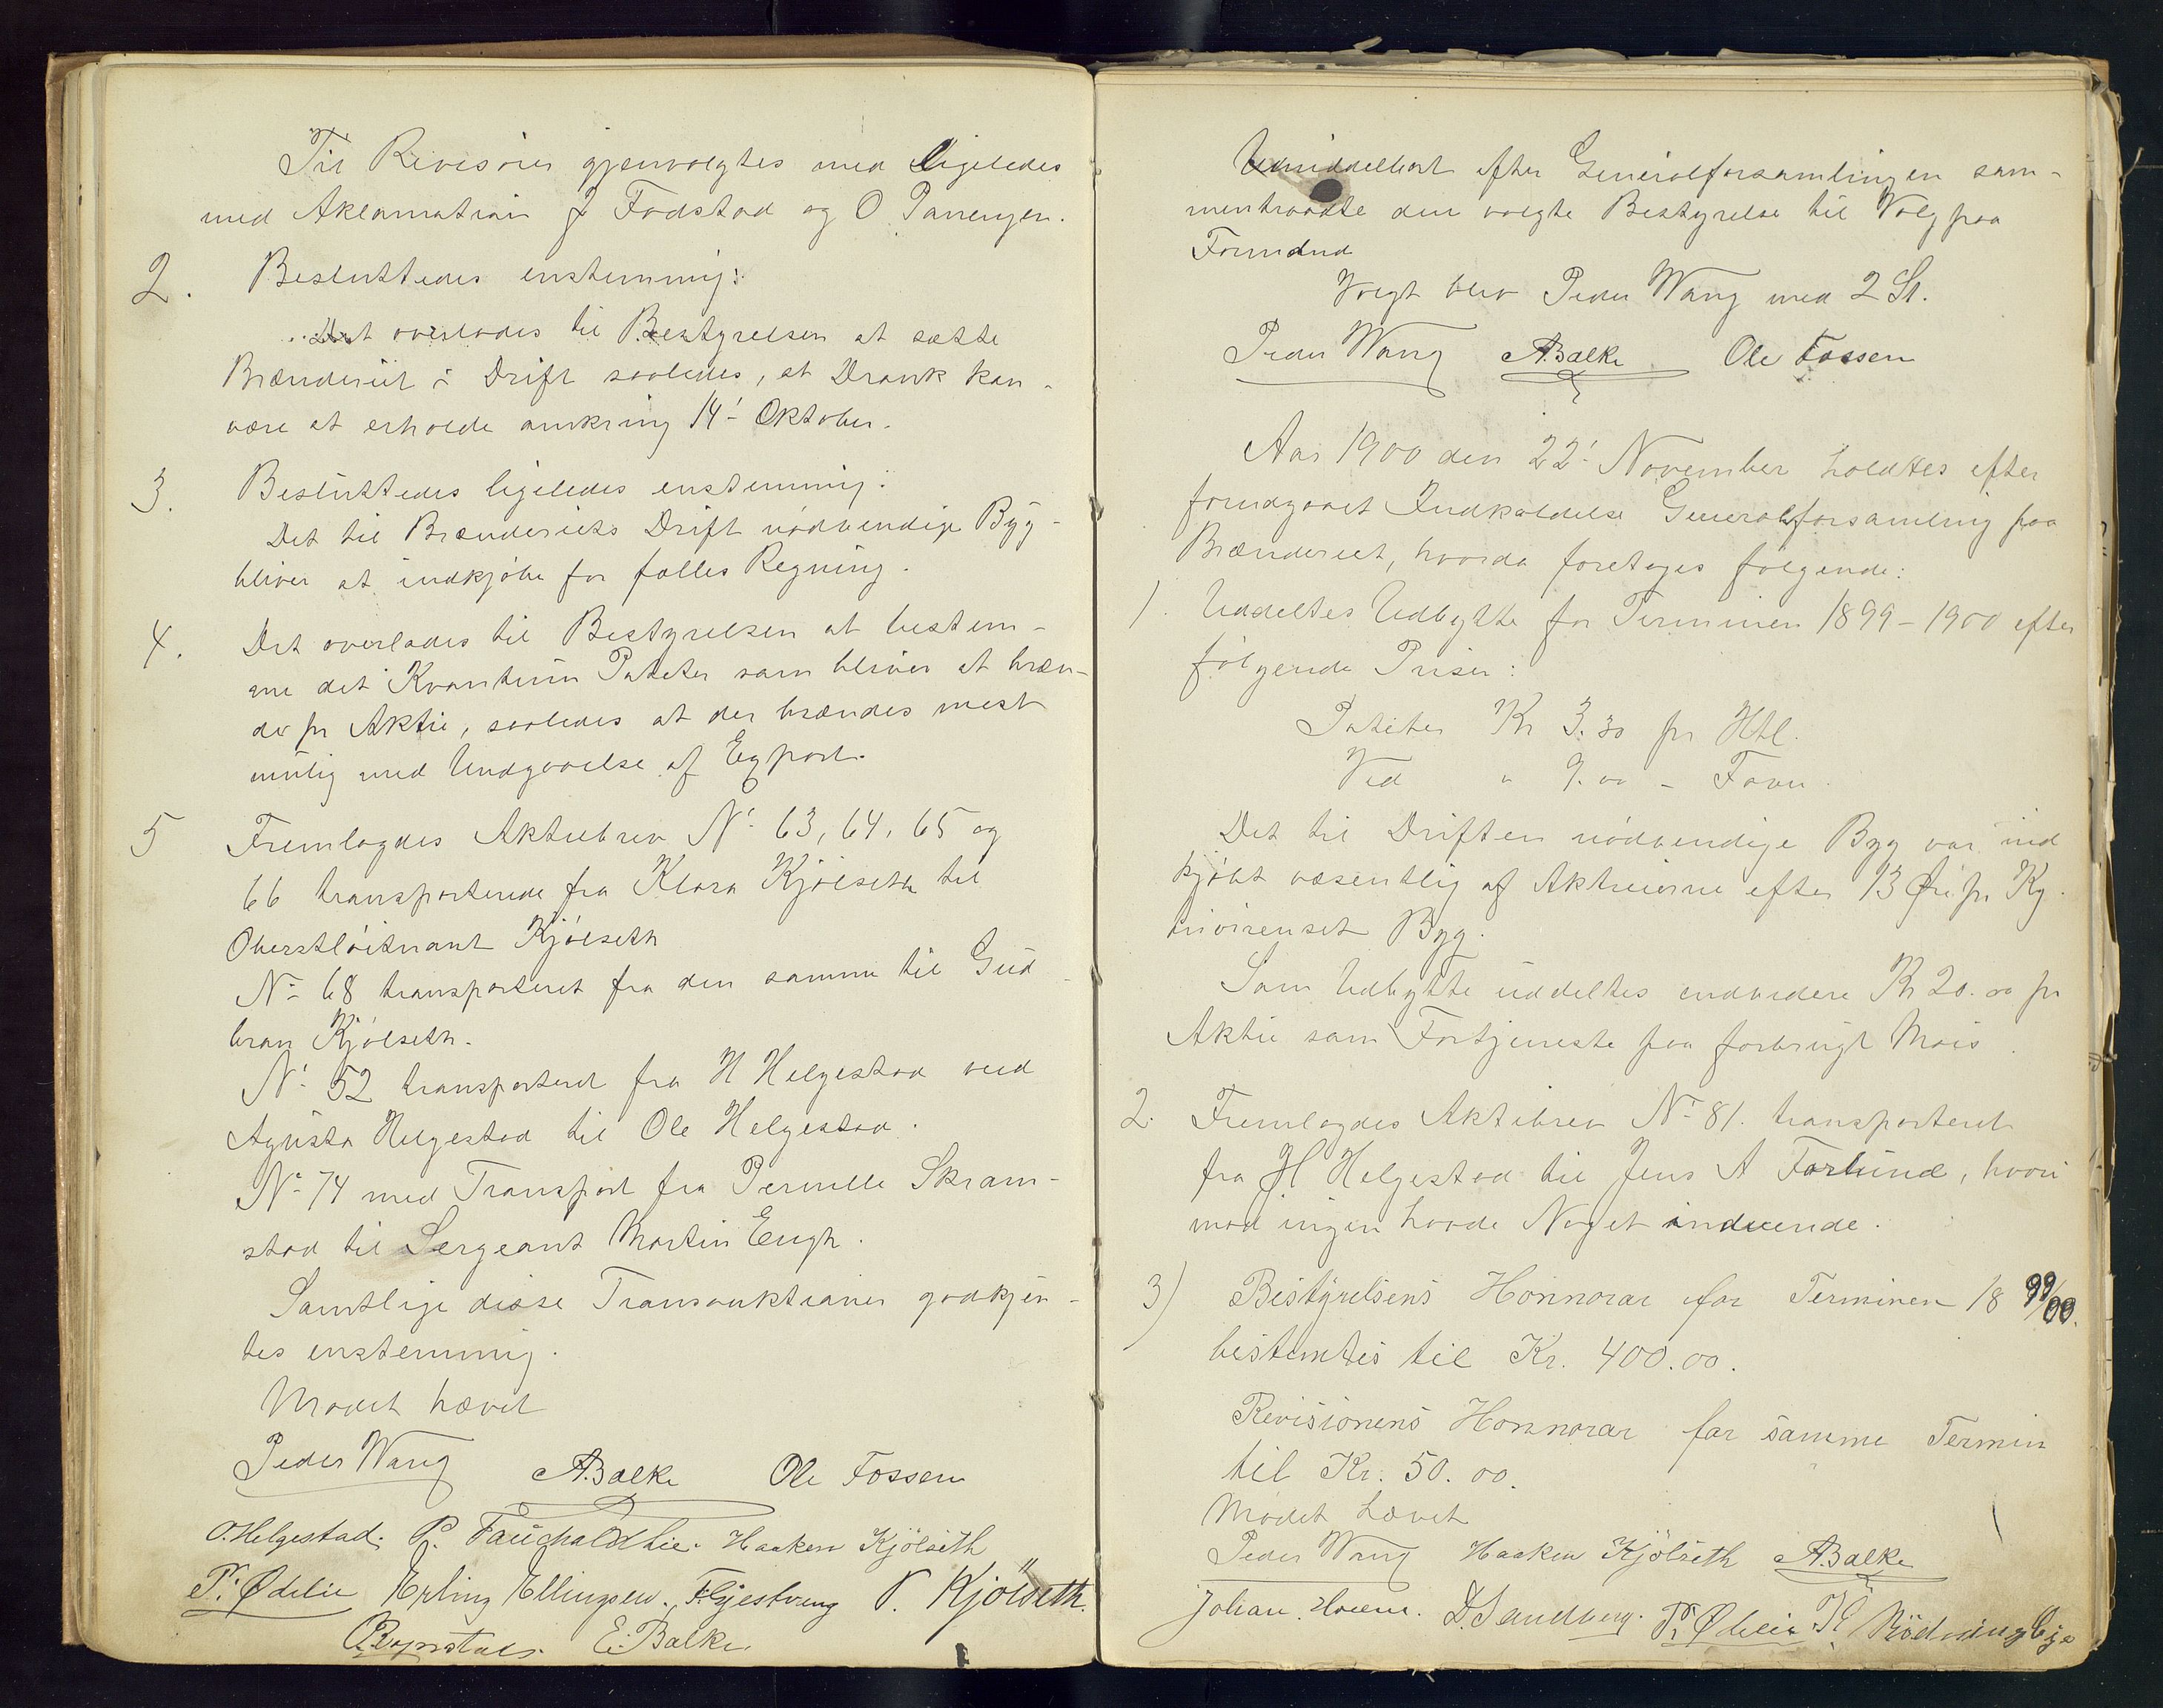 Til Revisorer gjenvalgtes med ligeledes
med Aklamation J Fodstad og O Panengen.
2. Besluttedes enstemmig:
Det overlades til Bestyrelsen at sætte
Brænderiet i Drift saaledes, at Drank kan
være at erholde omkring 14' Oktober.
3. Besluttedes ligeledes enstemmig:
Det til Brænderiets Drift nødvendige Byg
bliver at indkjøbe for fælles Regning.
4. Det overlades til Bestyrelsen at bestem-
me det Kvantum Poteter som bliver at bræn-
de pr Aktie, saaledes at der brændes mest
mulig med Undgaaelse af Export.
5 Fremlagdes Aktiebrev No 63, 64, 65 og
66 transporterede fra Klara Kjölseth til
Oberstlöitnant Kjölseth
No 68 transporteret fra den samme til Gud-
bran Kjölseth.
No 52 transporteret fra H Helgestad ved
Agusta Helgestad til Ole Helgestad.
No 74 med Transport fra Pernille Skram-
stad til Sergeant Martin Engh.
Samtlige disse Transauktioner godkjen-
tes enstemmig.
Mødet hævet
Peder Wang A.Balke Ole Fossen
O.Helgestad. P. Fauchaldlie. Haaken Kjölseth
P. Ødelie Erling Ellingsen. F.Gjestvang P. Kjölseth.
E. Balke
Umiddelbart efter Generalforsamlingen sam-
mentraadte den valgte Bestyrelse til Valg paa
Formand
Valgt blev Peder Wang med 2 St.
Peder Wang A.Balke Ole Fossen
Aar 1900 den 22' November holdtes efter
forudgaaet Indkaldelse Generalforsamling paa
Brænderiet, hvorda foretoges følgende:
1. Uddeltes Udbytte for Terminen 1899-1900 efter
følgende Priser:
Poteter Kr 3.30 pr Htl.
Ved " 9.00 - Favn.
Det til Driften nødvendige Byg var ind
kjøbt væsentlig af Aktieierne efter 13 Øre pr Kg.
trivirenset Byg.
Som Udbytte uddeltes endvidere Kr 20.00 pr
Aktie som Fortjeneste paa forbrugt Mais.
2. Fremlagdes Aktiebrev No 81. transporteret
fra H Helgestad til Jens A Forlund, hvori
mod ingen havde Noget indvende.
3) Bestyrelsens Honnorar for Terminen 18 99/00.
bestemtes til Kr. 400.00.
Revisionens Honnorar for samme Termin
til Kr. 50.00.
Mødet hævet
Peder Wang Haaken Kjölseth A.Balke
Johan Hoem. D.Sandberg. P. Ødelie